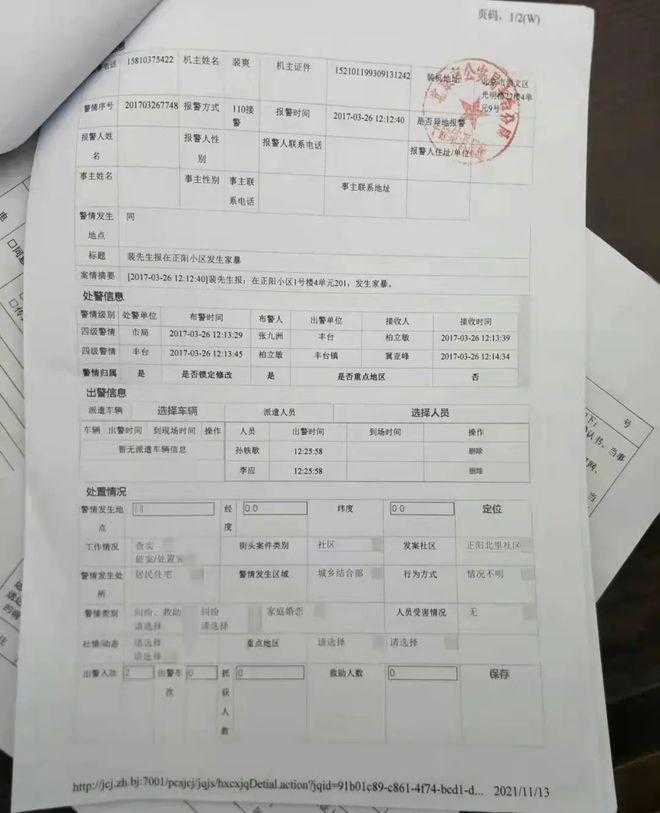 页码，1/2(W)
15810375422 机主姓名 裴爽 机主证件 152101199309131242
警情序号 201703267748 报警方式 110接警 报警时间 2017-03-26 12:12:40 是否异地报警
报警人姓名 报警人性别 报警人联系电话 报警人住址/单位
事主姓名 事主性别 事主联系电话 事主联系地址
警情发生地点 同
标题 裴先生报在正阳小区发生家暴
案情摘要 [2017-03-26 12:12:40]裴先生报：在正阳小区1号楼4单元201，发生家暴。
处警信息
警情级别 处警单位 布警时间 布警人 出警单位 接收人 接收时间
四级警情 市局 2017-03-26 12:13:29 张九洲 丰台 柏立敏 2017-03-26 12:13:39
四级警情 丰台 2017-03-26 12:13:45 柏立敏 丰台镇 冀亚峰 2017-03-26 12:14:34
警情归属 是 是否锁定修改 是 是否重点地区 否
出警信息
派遣车辆 选择车辆 派遣人员 选择人员
车辆 出警时间 到现场时间 操作 人员 出警时间 到场时间 操作
暂无派遣车辆信息 孙铁敏 12:25:58 删除
李应 12:25:58 删除
处置情况
警情发生地点 经度 0.0 纬度 0.0 定位
工作情况 查实 街头案件类别 社区 发案社区 正阳北里社区
警情发生处所 居民住宅 警情发生区域 城乡结合部 行为方式 情况不明
警情类别 纠纷、救助 纠纷 家庭婚恋 人员受害情况 无
请选择 请选择
社情/动态 请选择 重点地区 请选择 请选择
请选择
出警人次 2 出警车次 0 抓获人数 0 救助人数 0 保存
http://jcj.zh.bj:7001/pcsjcj/jqjs/hxcxjqDetial.action?jqid=91b01c89-c861-4f74-bcd1-d... 2021/11/13